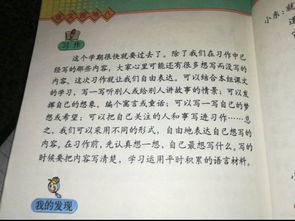 习作
这个学期很快就要过去了。除了我们在习作中已
经写的那些内容,大家心里可能还有很多想写而没写的
内容。这次习作就让我们自由表达。可以结合本组课文
的学习,写一写听别人或给别人讲故事的情景;可以发
挥自己的想象,编个寓言或童话;可以写一写自己的梦
想或希望;可以把自己关注的人和事写进习作……总
之,我们可以采用不同的形式,自由地表达自己想写的
内容。在习作前,先认真想一想,自己最想写什么。写的
时候要把内容写清楚,学习运用平时积累的语言材料。
我的发现
小东: